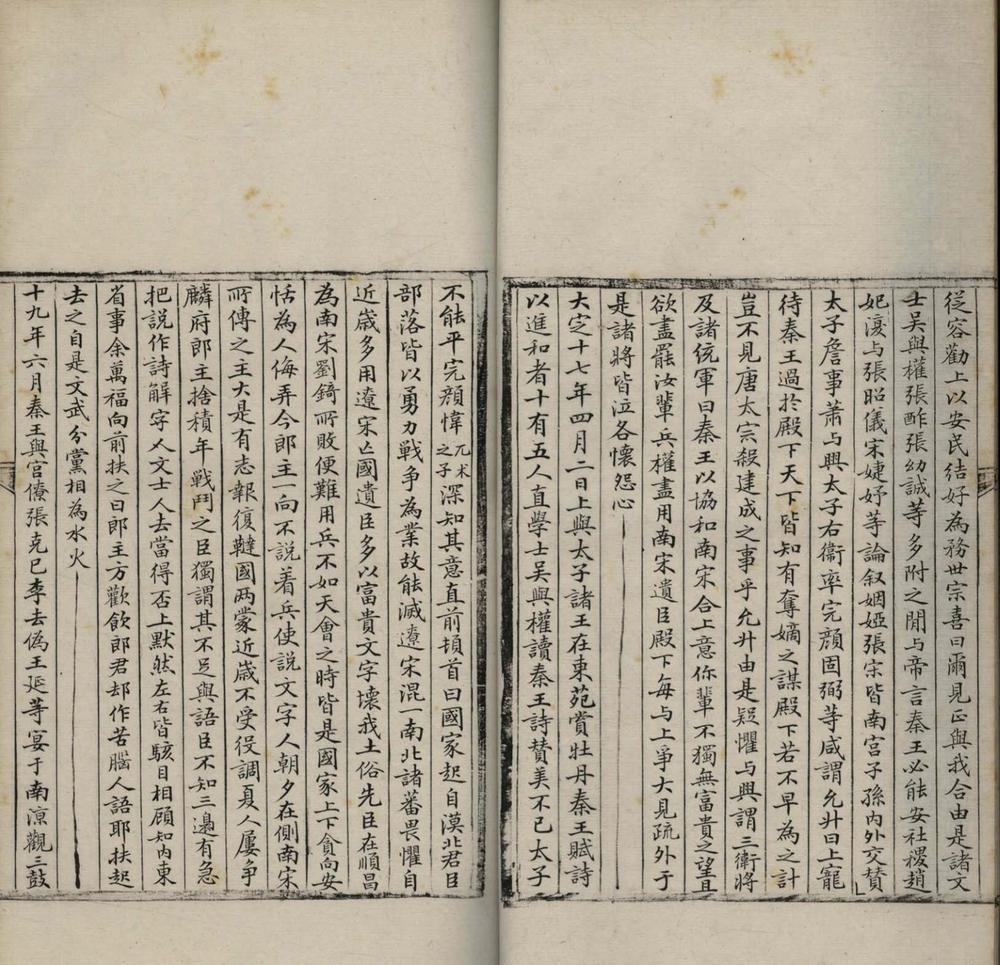 從容勸上以安民結好為務世宗喜曰爾見正與我合由是諸文
士吳與權張酢張幼誠等多附之閒与帝言秦王必能安社稷趙
妃寖与張昭儀宋婕妤等論叙姻婭張宗皆南宫子孫内外交賛
太子詹事蕭与興太子右衞率完顔固弼等咸謂允升曰上寵
待秦王過於殿下天下皆知有奪嫡之謀殿下若不早為之計
豈不見唐太宗殺建成之事乎允升由是疑懼与興謂三衛將
及諸統軍曰秦王以協和南宋合上意你輩不獨無富貴之望且
欲盡罷汝輩兵權盡用南宋遺臣殿下每与上爭大見疏外于
是諸將皆泣各懐怨心
大定十七年四月二日上與太子諸王在東苑賞牡丹秦王賦詩
以進和者十有五人直學士吳與權讀秦王詩賛美不已太子
不能平完顔偉兀术之子深知其意直前頓首曰國家起自漠北君臣
部落皆以勇力戰爭為業故能滅遼宋混一南北諸蕃畏懼自
近歳多用遼宋亡國遺臣多以富貴文字壞我土俗先臣在順昌
為南宋劉錡所敗便難用兵不如天會之時皆是國家上下貪向安
恬為人侮弄今郎主一向不説着兵使説文字人朝夕在側南宋
所傳之主大是有志報復韃國两蒙近歳不受役調夏人屢争
麟府郎主捨積年戰鬥之臣獨謂其不足與語臣不知三邊有急
把説作詩解字人文士人去當得否上默然左右皆駭目相顧知内東
省事余萬福向前扶之曰郎主方歡飲郎君却作苦腦人語耶扶起
去之自是文武分黨相為水火
十九年六月秦王與宫僚張克巳李去偽王延等宴于南凉觀三鼓